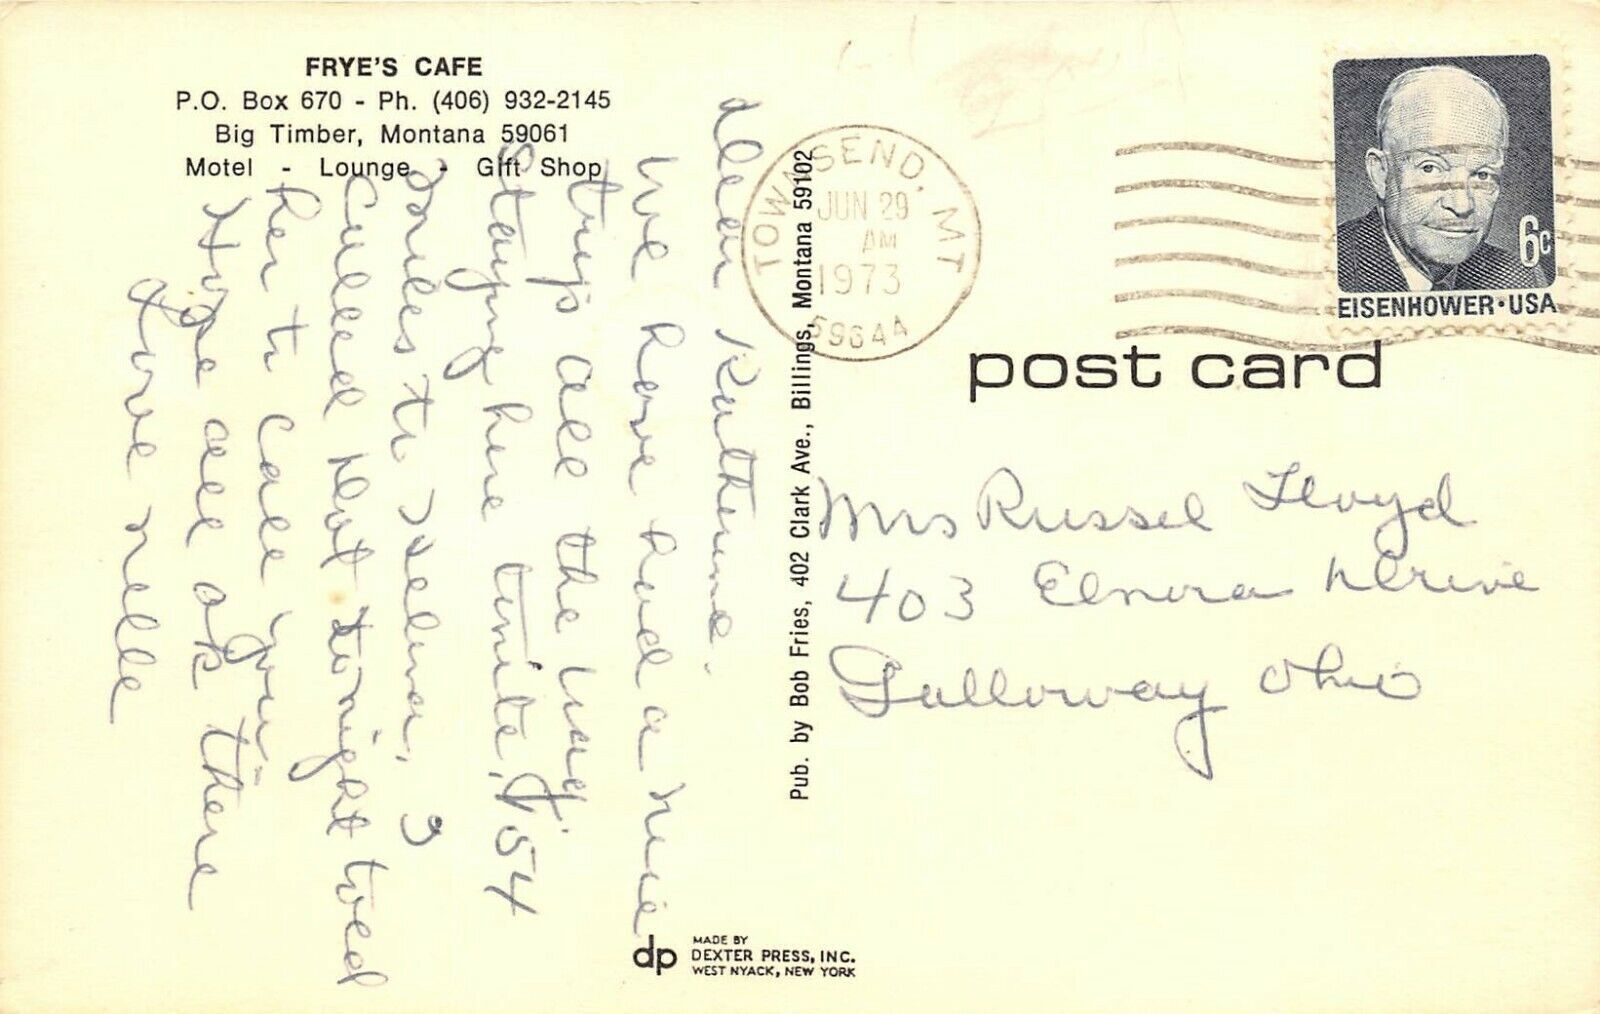 FRYE'S CAFE
P.O. Box 670 - Ph. (406) 932-2145
Big Timber, Montana 59061
Motel - Lounge - Gift Shop
Dear Katherine.
We have had a nice
trip all the way
staying here tonite, 154
miles to Helena, I
called Dot tonight told
her to call you
Hope all ok there
Love Nelle
Pub. by Bob Fries, 402 Clark Ave., Billings, Montana 59102
TOWNSEND, MT
JUN 29
AM
1973
59644
6c
EISENHOWER • USA
post card
Mrs Russel Floyd
403 Elnora Drive
Galloway Ohio
dp
MADE BY
DEXTER PRESS, INC.
WEST NYACK, NEW YORK